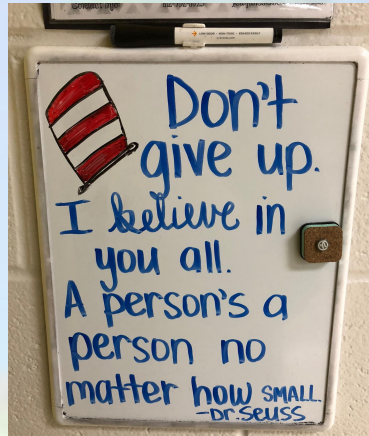 Don't
give up.
I believe in
you all.
A person's a
person no
matter how SMALL.
-Dr. Seuss